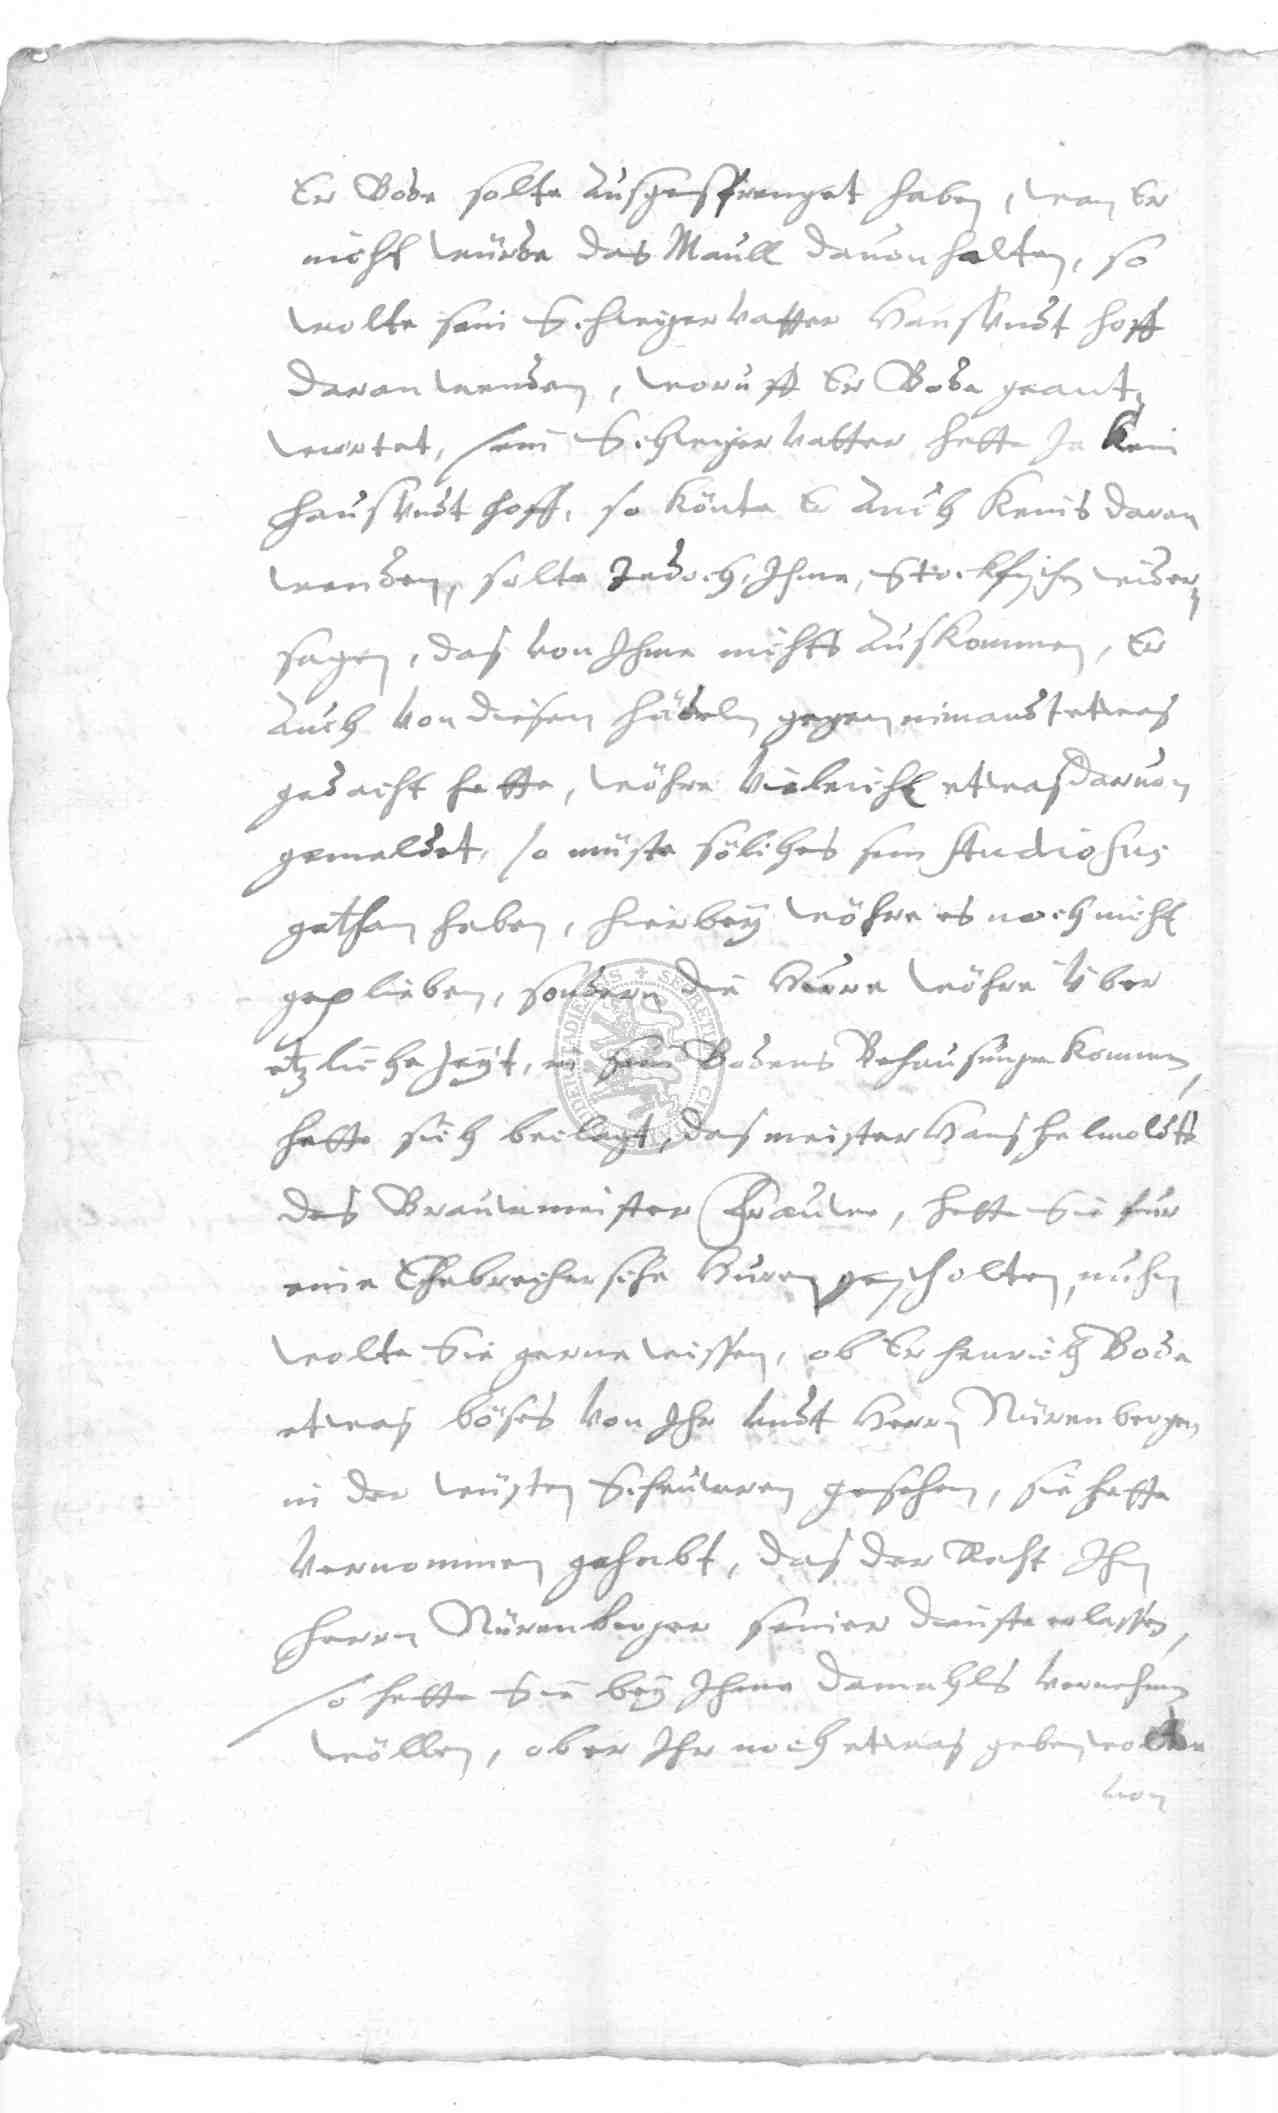 Er Bode solte Außgesprenget haben, wan Er
nicht würde das Maull dauon halten, so
wolte sein Schwigervatter Hauß vndt Hoff
daran wenden, woruff Er Bode geant„
wortet, sein Schwigervatter hette Ja kein
Hauß vndt Hoff, so könte Er Auch keins daran
wenden, solte Jedoch, Ihme, Stockfischen wider„
sagen, daß von Ihme nichts Auskommen, Er
Auch von diesen händeln gegen nimandt etwas
gedacht hette, wöhre vieleicht etwaß daruon
gemeldet, so müste sölches sein Studiosus
gethan haben, hierbey wöhre es noch nicht
geplieben, sondern die Hure wöhre Vber
etzliche Zeyt, in sein Bodens Behausunge kommen,
hette sich beclagt, das meister Hanß Helmoldts
des Brauwmeister Frauwe, hette Sie fur
eine Ehebrechersche Huren gescholten, nuhn
wolte Sie gerne wissen, ob Er Henrich Bode
etwaß böses von Ihr vndt Herrn Nürenbergen
in der wüsten Scheuwren gesehen, sie hette
vernommen gehabt, daß der Raht Ihn
Herrn Nürenberger seiner dienste erlassen,
so hette Sie bey Ihme damahls vernehmen
wöllen, ob er Ihr noch etwaß geben wolte